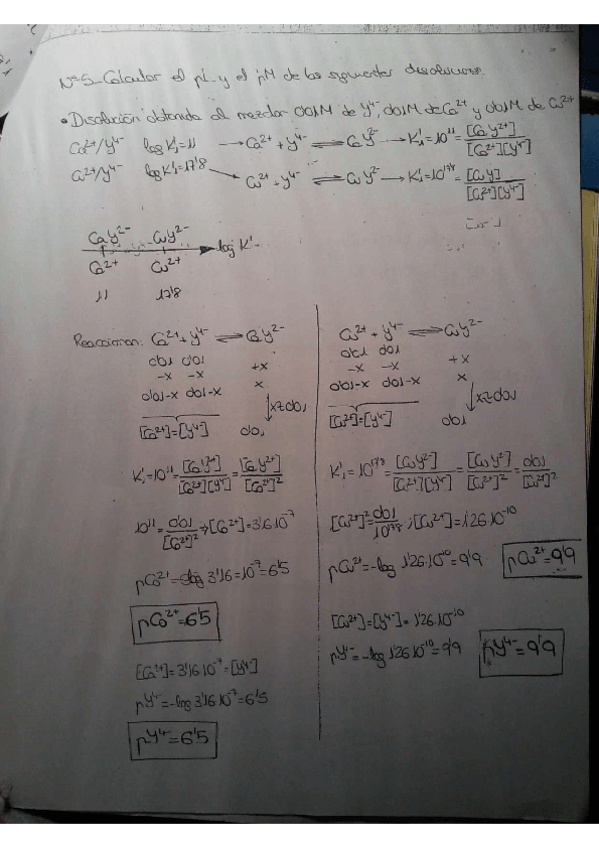 Nº5_ Calcular el pL y el pM de las siguientes disoluciones.
• Disolución obtenida al mezclar 0'01M de Y⁴⁻, 0'01M de Ca²⁺ y 0'01M de Cu²⁺
Ca²⁺/Y⁴⁻ log K'₁=11 → Ca²⁺ + Y⁴⁻ ⇌ CaY²⁻ → K'₁=10¹¹ = [CaY²⁺]/[Ca²⁺][Y⁴⁻]
Cu²⁺/Y⁴⁻ log K'₁=17'8 → Cu²⁺ + Y⁴⁻ ⇌ CuY²⁻ → K'₁=10¹⁷'⁸ = [CuY]/[Cu²⁺][Y⁴⁻]
CaY²⁻ CuY²⁻
log K'
Ca²⁺ Cu²⁺
11 17'8
Reaccionan: Ca²⁺ + Y⁴⁻ ⇌ CaY²⁻
0'01 0'01
-x -x +x
0'01-x 0'01-x x
↓x≈0'01
[Ca²⁺]=[Y⁴⁻] 0'01
K'₁=10¹¹= [CaY²⁻]/[Ca²⁺][Y⁴⁻] = [CaY²⁺]/[Ca²⁺]²
10¹¹= 0'01/[Ca²⁺]² → [Ca²⁺]=3'16·10⁻⁷
pCa²⁺=-log 3'16·10⁻⁷=6'5
pCa²⁺=6'5
[Ca²⁺]=3'16·10⁻⁷=[Y⁴⁻]
pY⁴⁻=-log 3'16·10⁻⁷=6'5
pY⁴⁻=6'5
Cu²⁺ + Y⁴⁻ ⇌ CuY²⁻
0'01 0'01
-x -x +x
0'01-x 0'01-x x
↓x≈0'01
[Cu²⁺]=[Y⁴⁻] 0'01
K'₁=10¹⁷'⁸= [CuY²⁻]/[Cu²⁺][Y⁴⁻] = [CuY²⁻]/[Cu²⁺]² = 0'01/[Cu²⁺]²
[Cu²⁺]²= 0'01/10¹⁷'⁸ ; [Cu²⁺]=1'26·10⁻¹⁰
pCu²⁺=-log 1'26·10⁻¹⁰=9'9 pCu²⁺=9'9
[Cu²⁺]=[Y⁴⁻]=1'26·10⁻¹⁰
pY⁴⁻=-log 1'26·10⁻¹⁰=9'9 pY⁴⁻=9'9